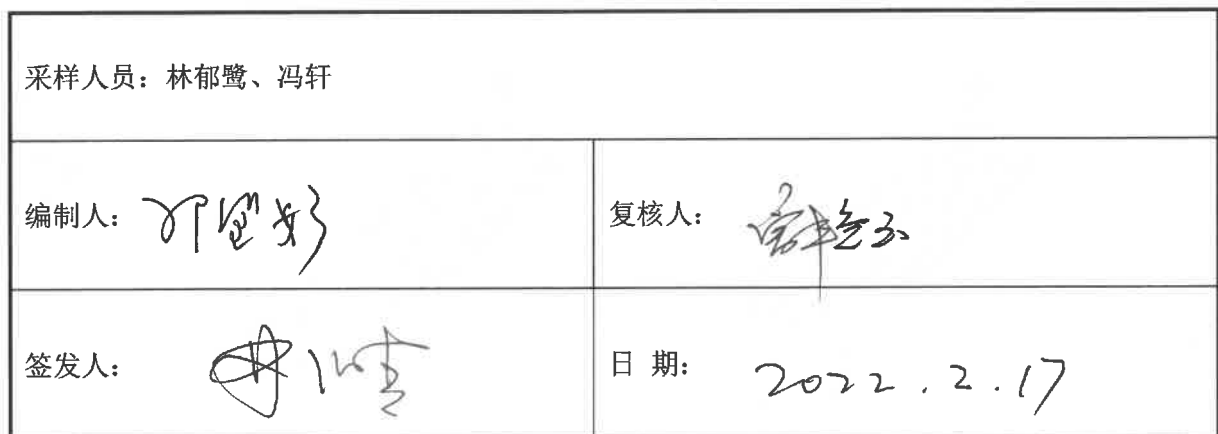 采样人员：林郁鹭、冯轩
编制人：
复核人：
签发人：
日 期： 2022.2.17